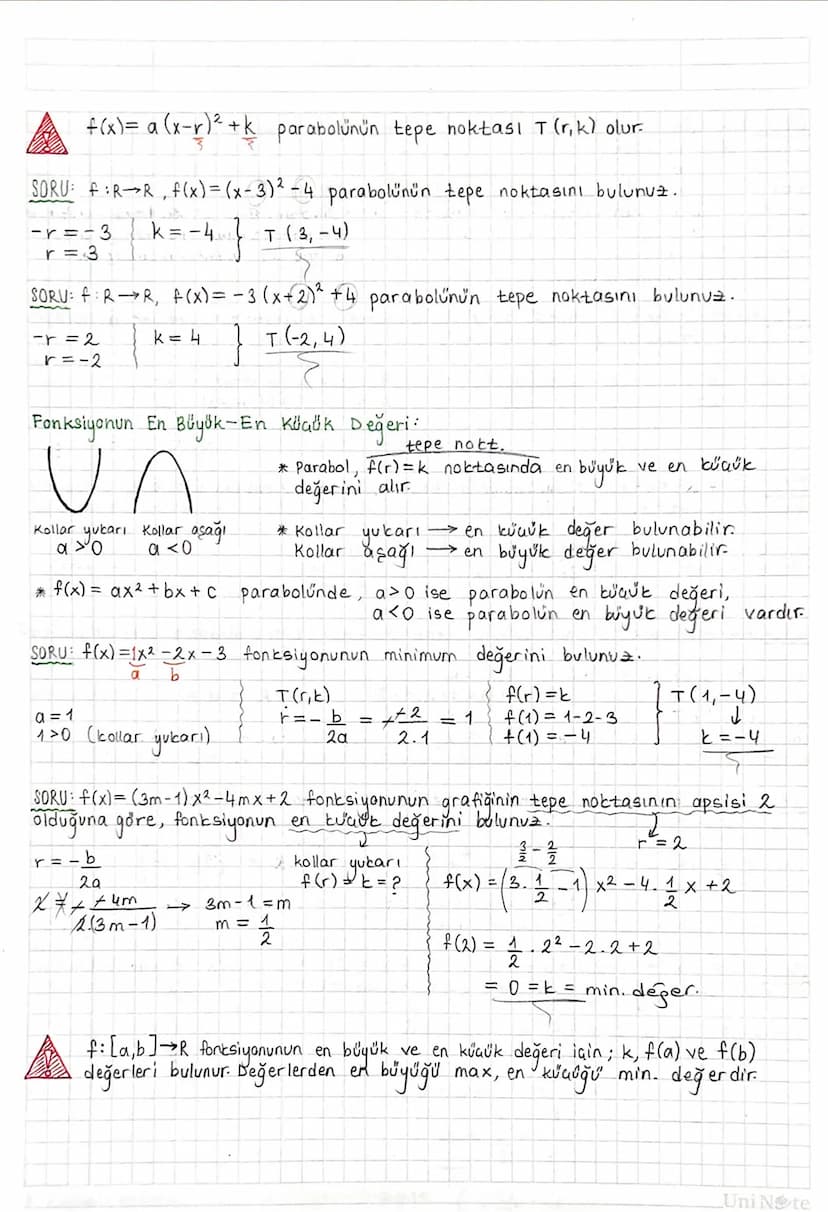 f(x) = a(x-r)² + k parabolünün tepe noktası T(r,k) olur.
SORU: f:R→R, f(x)=(x-3)²-4 parabolünün tepe noktasını bulunuz.
-r = -3 } k = -4 } T(3,-4)
r = 3
SORU: f:R→R, f(x) = -3(x+2)² +4 parabolünün tepe noktasını bulunuz.
-r = 2 } k = 4 } T(-2,4)
r = -2
Fonksiyonun En Büyük-En Küçük Değeri:
tepe nokt.
* Parabol, f(r)=k noktasında en büyük ve en küçük
değerini alır.
Kollar yukarı Kollar aşağı
a>0 a<0
* Kollar yukarı → en küçük değer bulunabilir.
Kollar aşağı → en büyük değer bulunabilir.
* f(x) = ax²+bx+c parabolünde, a>0 ise parabolün en küçük değeri,
a<0 ise parabolün en büyük değeri vardır.
SORU: f(x)=1x²-2x-3 fonksiyonunun minimum değerini bulunuz.
a b
a=1
1>0 (kollar yukarı)
T(r,k)
r = -b/2a = --2/2.1 = 1
f(r)=k
f(1) = 1-2-3
f(1) = -4
T(1,-4)
↓
k = -4
SORU: f(x) = (3m-1)x²-4mx+2 fonksiyonunun grafiğinin tepe noktasının apsisi 2
olduğuna göre, fonksiyonun en küçük değerini bulunuz.
r = 2
r = -b/2a
2 = --4m/2.(3m-1) → 3m-1 = m
m = 1/2
kollar yukarı
f(r) = k = ?
3/2 - 2/2
f(x) = (3.1/2 - 1)x² - 4.1/2x + 2
f(2) = 1/2.2² - 2.2+2
= 0 = k = min. değer.
f:[a,b]→R fonksiyonunun en büyük ve en küçük değeri için; k, f(a) ve f(b)
değerleri bulunur. Değerlerden en büyüğü max, en küçüğü min. değerdir.
UniNote